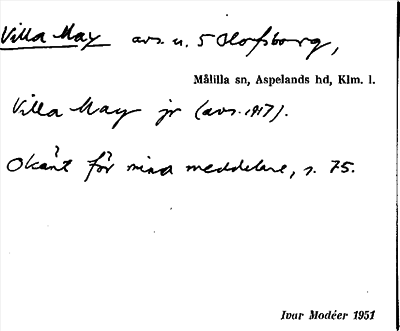 Villa May avs. u. 5 Olofsborg,
Målilla sn, Aspelands hd, Klm. l.
Villa May jr (avs. 1917).
Okänt för mina meddelare, s. 75.
Ivar Modéer 1951